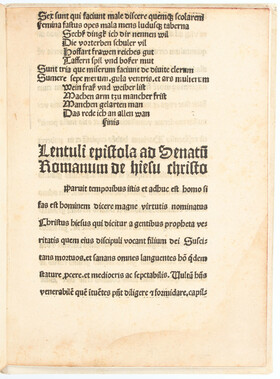 Sex sunt qui faciunt male discere quemq scolarem
Femina fastus opes mala mens ludusq taberna
Sechß dingk ich dir nennen wil
Die vorterben schuler vil
Hoffart frawen reiches gut
Taffern spil vnd boser mut
Sunt tria que miserum faciunt de diuite clerum
Sumere sepe merum. gula ventris. et ars mulierum
Wein fraß vnd weiber list
Machen arm tzu mancher frist
Manchen gelarten man
Das rede ich an allen wan
Finis
Lentuli epistola ad Senatū
Romanum de hiesu christo
Paruit temporibus istis et adhuc est homo si
fas est hominem dicere magne virtutis nominatus
Christus hiesus qui dicitur a gentibus propheta ve
ritatis quem eius discipuli vocant filium dei Suscitans
mortuos, et sanans omnes languentes hō quidem
stature ,pcere. et mediocris ac spectabilis. Vultū hñs
venerabilē quē ītuētes pñt diligere ⁊ formidare, capil-